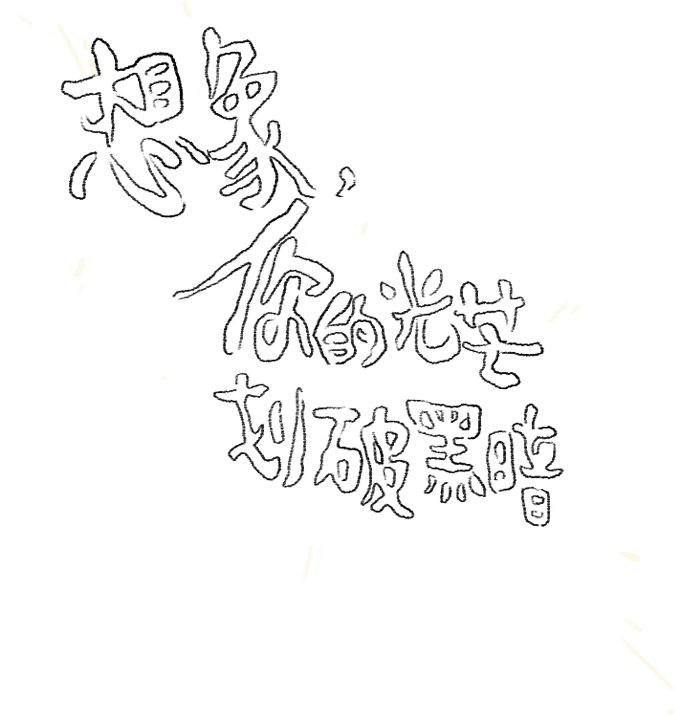 想象，
你的光芒
划破黑暗